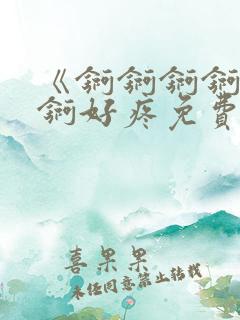 《锕锕锕锕
锕好疼免費
喜果果
未经同意禁止转载